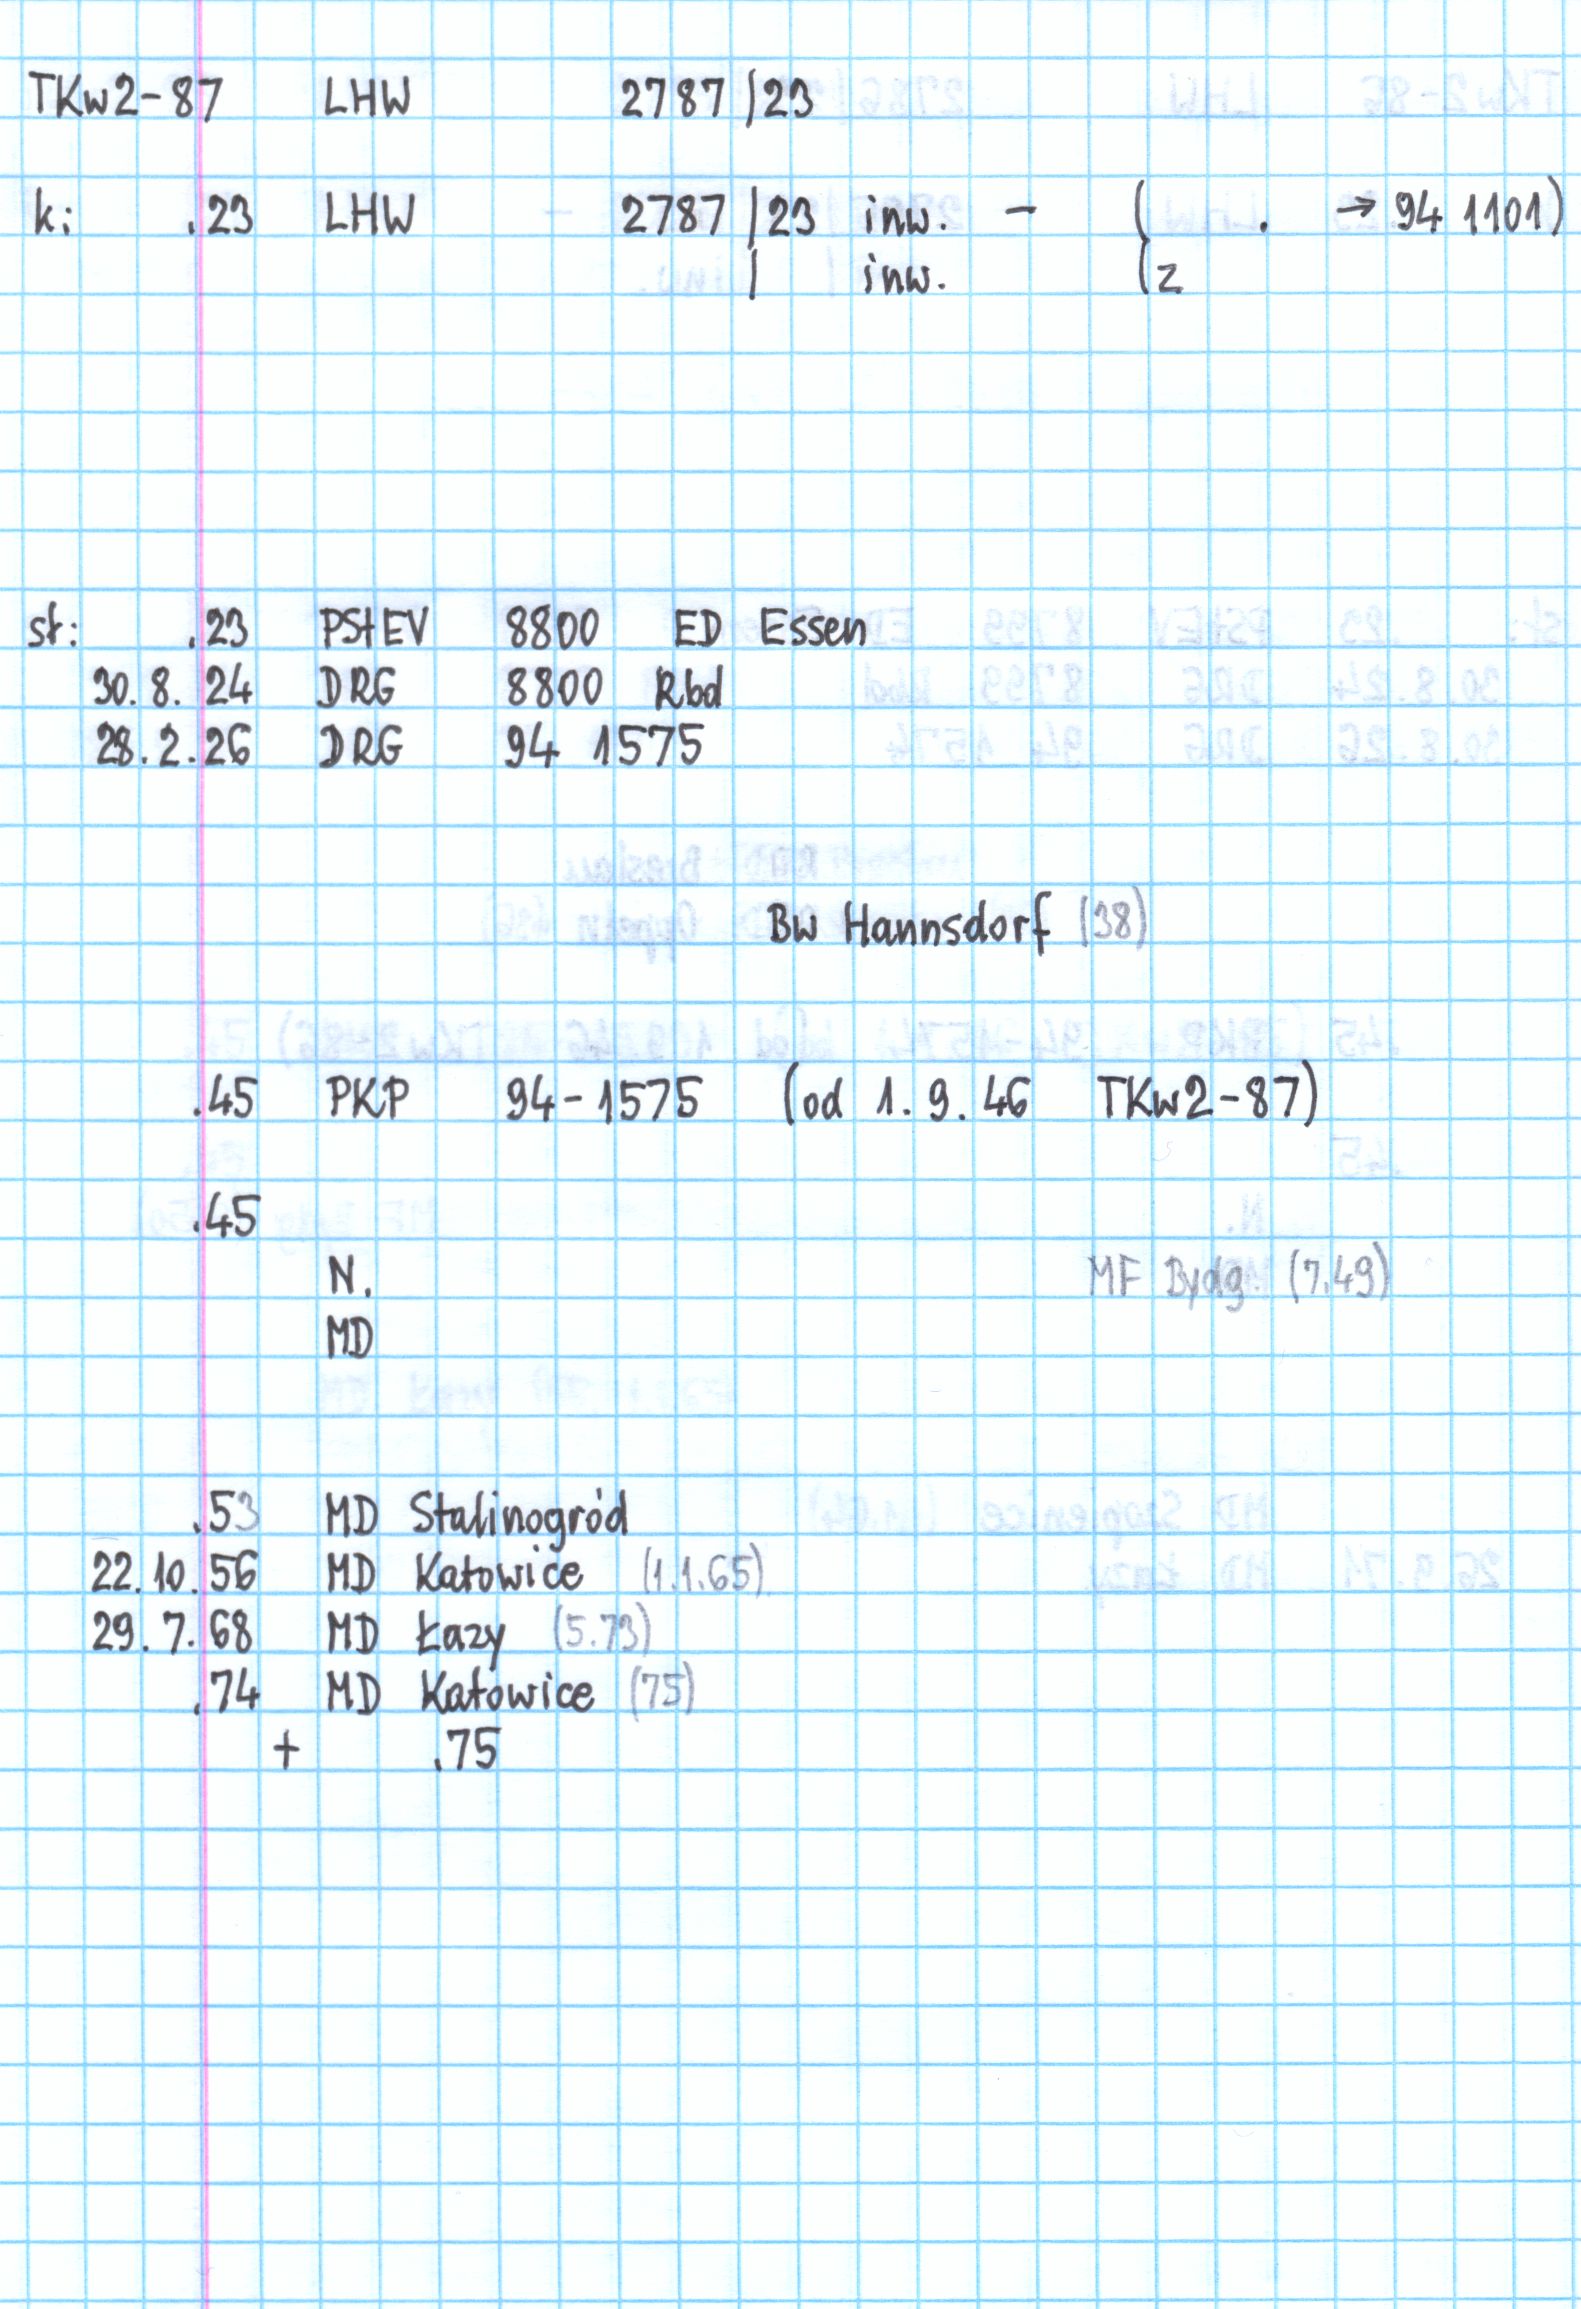 TKw2-87 LHW 2787/23
k: .23 LHW 2787/23 inw. - ( . → 94 1101)
/ inw. (z
st: .23 PStEV 8800 ED Essen
30.8.24 DRG 8800 Rbd
28.2.26 DRG 94 1575
Bw Hannsdorf (38)
.45 PKP 94-1575 (od 1.9.46 TKw2-87)
.45
N. MF Bydg. (7.49)
MD
.53 MD Stalinogród
22.10.56 MD Katowice (1.1.65)
29.7.68 MD Łazy (5.73)
.74 MD Katowice (75)
+ .75